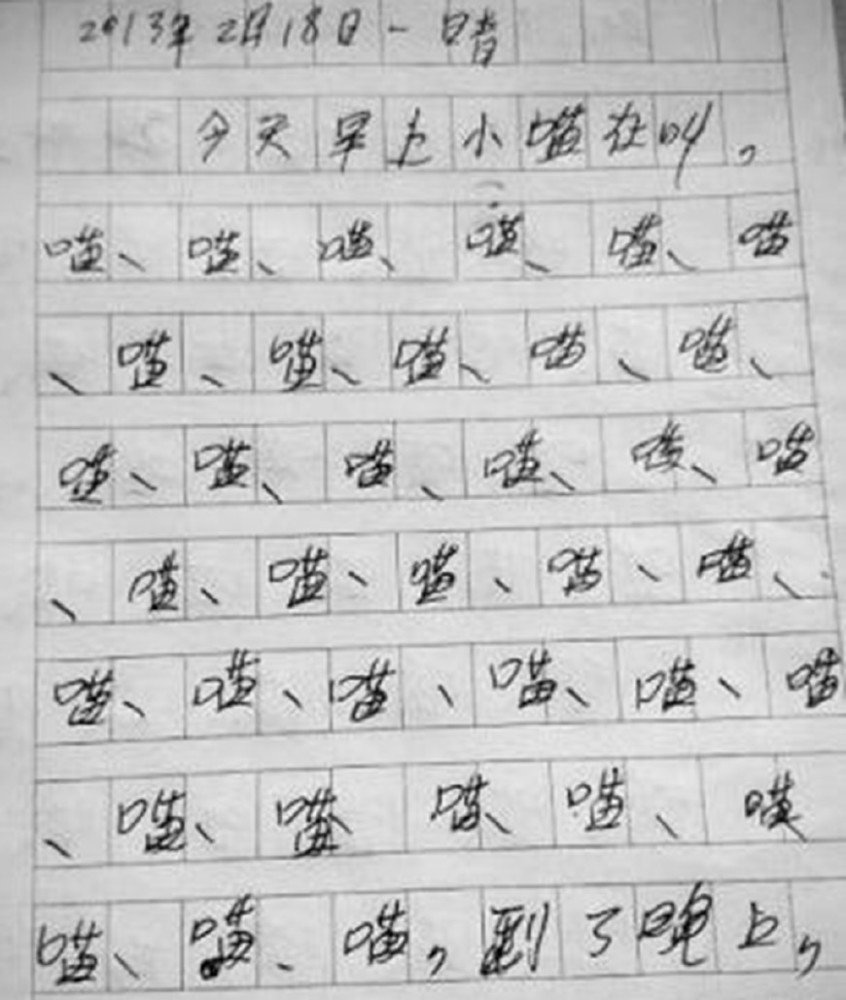 2013年2月18日一晴
今天早上小喵在叫,
喵、喵、喵、喵、喵、喵
、喵、喵、喵、喵、喵、
喵、喵、喵、喵、喵、喵
、喵、喵、喵、喵、喵、
喵、喵、喵、喵、喵、喵
、喵、喵 喵、喵、喵
喵、喵、喵,到了晚上,